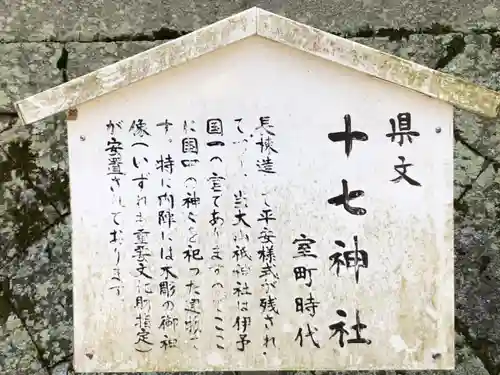 県文
十七神社
室町時代
長棟造 て平安様式が残され
て 、当大山祇神社は伊予
国一の宮でありますのでここ
に国 の神々を祀った建物で
す 特に内陣には木彫の御神
像(いずれも重要文化財指定)
が安置されております